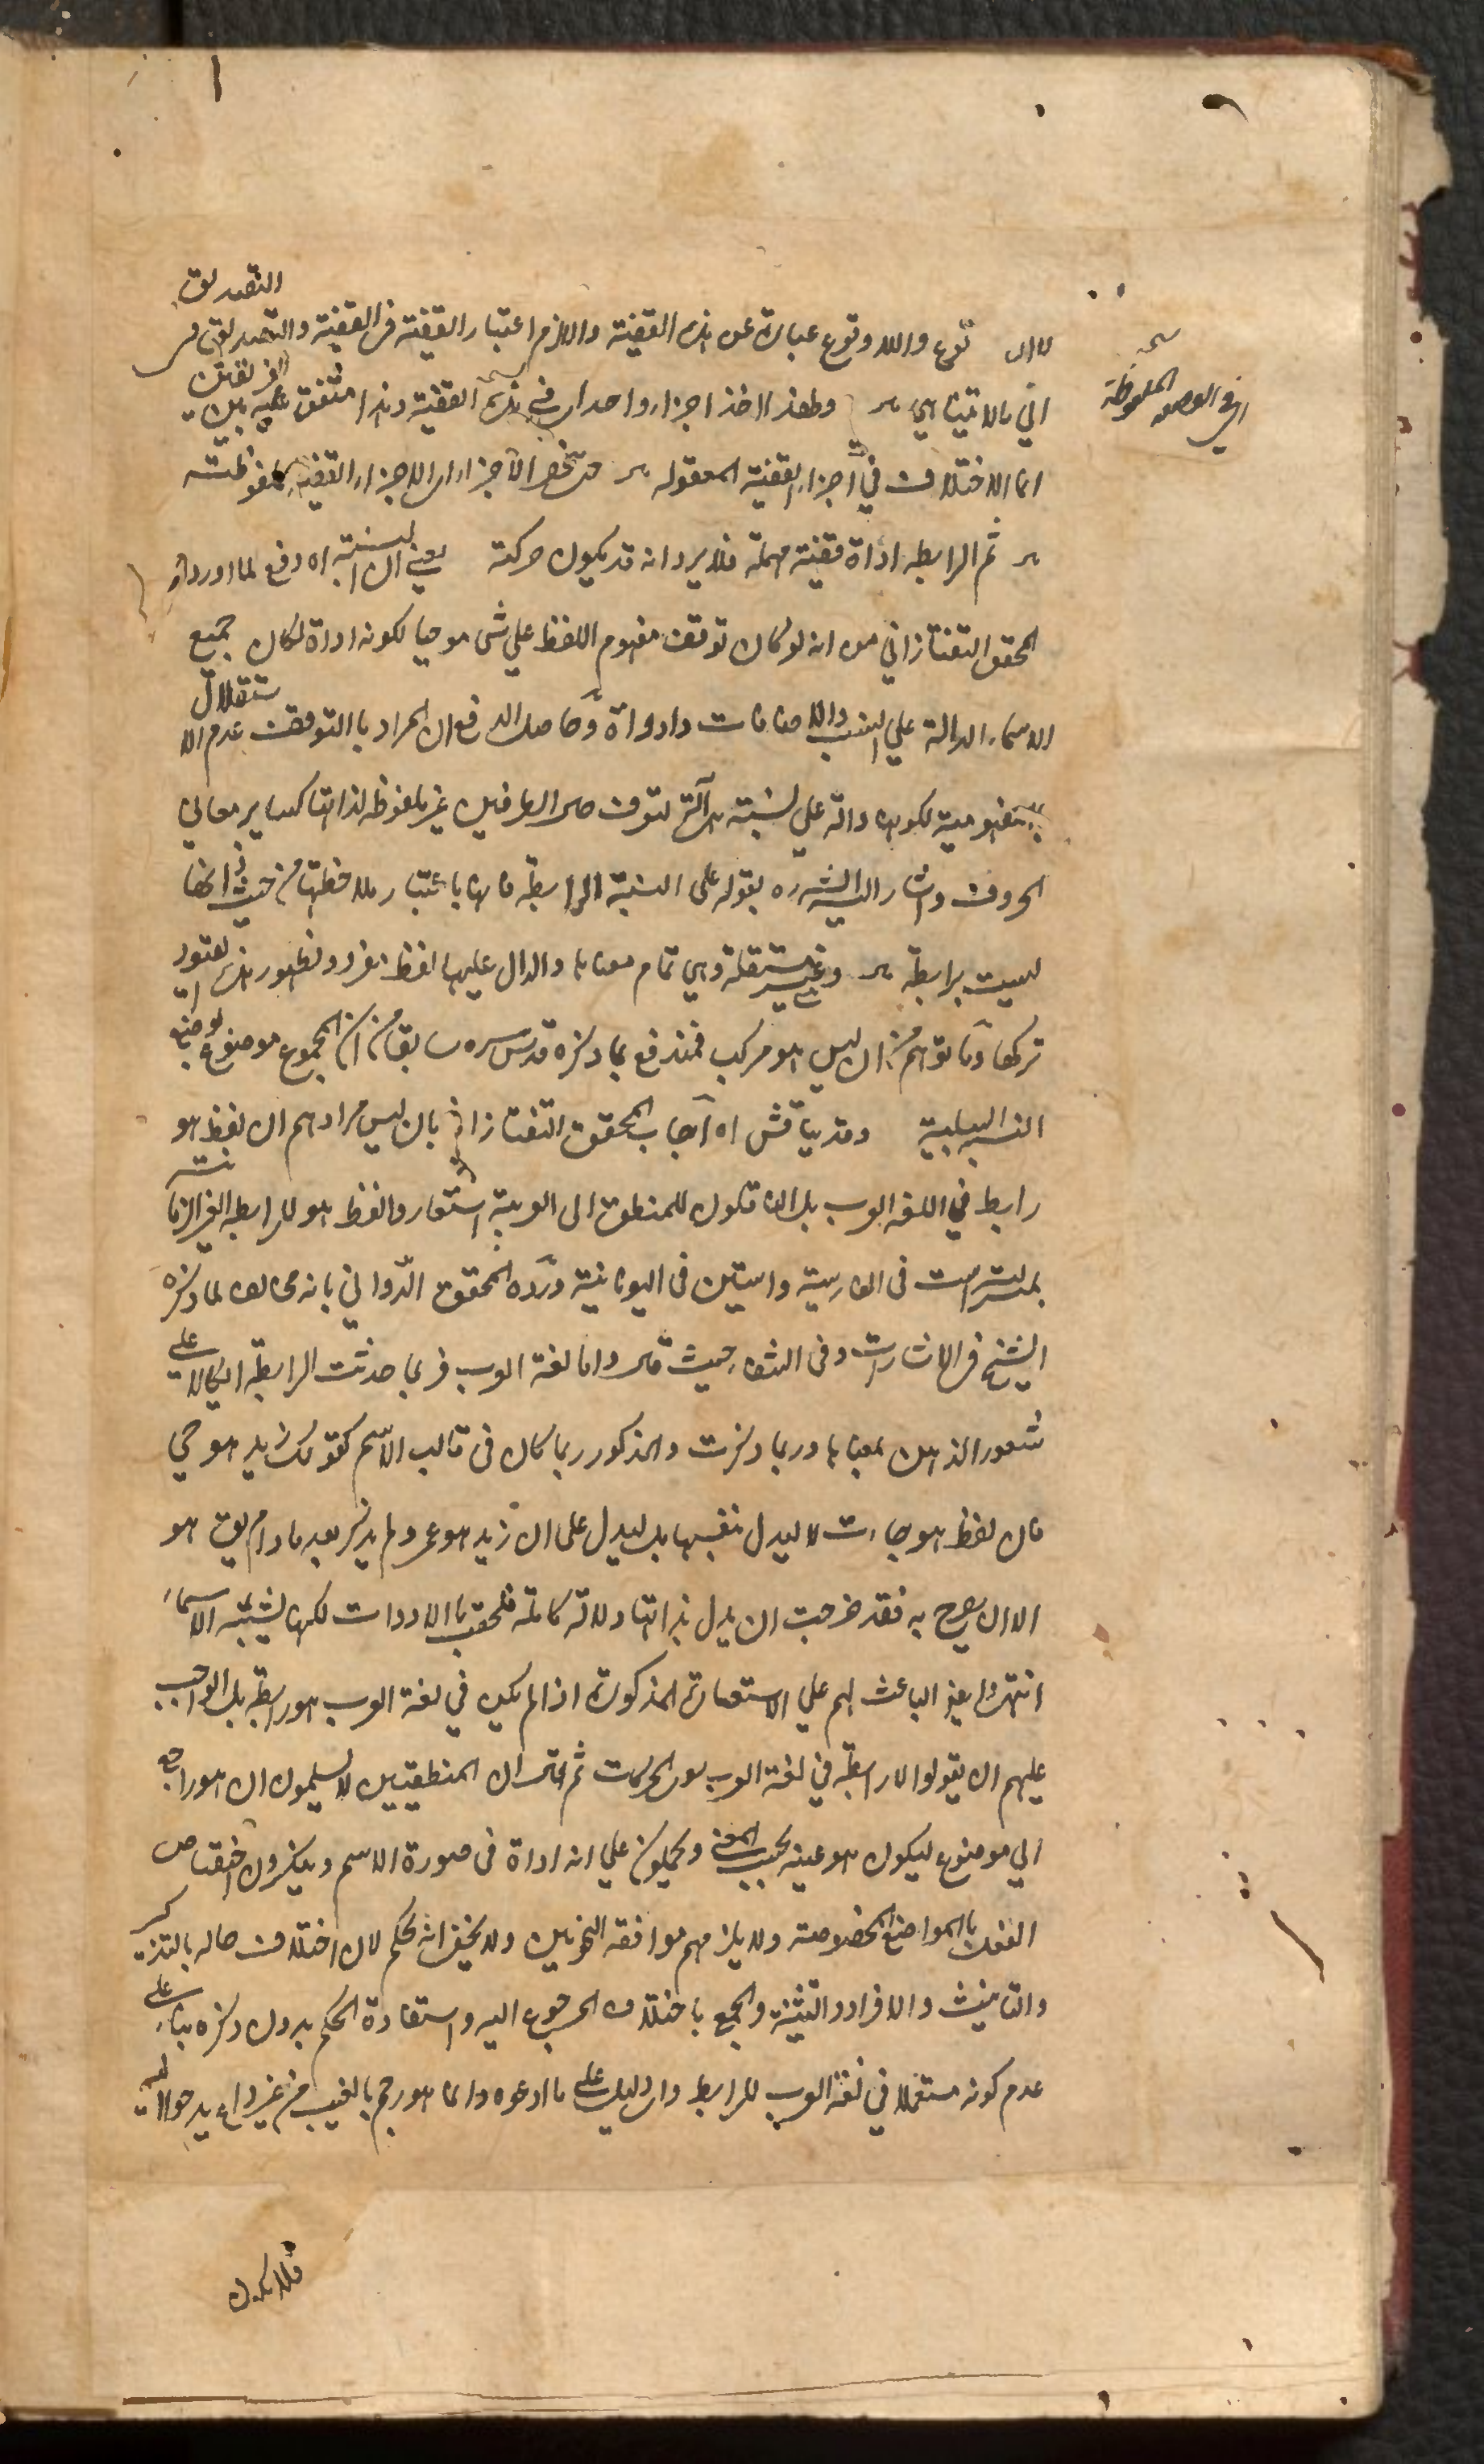 لان الوقوع واللاوقوع عبارة عن هذه القضية واللازم اعتبار القضية في القضية والتصديق
التصديق
الى ما لا يتناهى ولهذا اخذ اجزاء واحدا في هذه القضية وهذا متفق عليه بين الفريقين
انما الاختلاف في اجزاء القضية المعقولة الاجزاء اى الاجزاء القضية الملفوظة
ثم الرابطة اداة قضية مهملة فلا يرد انه قد يكون حركة يعني ان النسبة اه دفع لما اورده
المحقق التفتازاني من انه لو كان توقف مفهوم اللفظ على شئ موجبا لكونه اداة لكان جميع
الاسماء الدالة على النسب والاضافات ادواة وحاصل الدفع ان المراد بالتوقف عدم الاستقلال
بالمفهومية لكونها دالة على نسبة هي آلة لتعرف حال الطرفين غير ملحوظة لذاتها كساير معاني
الحروف واشار اليه الش ره بقوله على النسبة الرابطة فانها باعتبار ملاحظتها من حيث ذاتها
ليست برابطة وغير مستقلة وهي تمام معناها والدال عليها لفظ مفرد ولظهور هذه القيود
تركها وما توهم من ان ليس هو مركب فمندفع بما ذكره قدس سره سابقا من ان المجموع موضوع لوضع
النسبة السلبية وقد يناقش اه اجاب المحقق التفتازاني بان ليس مرادهم ان لفظ هو
رابط في اللغة العرب بل انه منقول للمنطق الى العربية استعاروا لفظ هو للرابطة الغير الزمانية
بمنزلة است في الفارسية واستين في اليونانية ورده المحقق الدواني بانه مخالف لما ذكره
الشيخ في الاشارات وفي الشفاء حيث قال واما لغة العرب فربما حذفت الرابطة اتكالا على
شعور الذهن بمعناها وربما ذكرت والمذكور ربما كان في قالب الاسم كقولك زيد هو حي
فان لفظ هو جاءت لا ليدل بنفسها بل ليدل على ان زيد هو امر ولم يذكر بعد ما دام يق هو
الا ان يصرح به فقد خرجت ان يدل بذاتها دلالة كاملة فلحقت بالادوات لكنها يشبه الاسماء
انتهى وايضا الباعث لهم على الاستعارة المذكورة اذا لم يكن في لغة العرب هو رابطة بل الواجب
عليهم ان يقولوا الرابطة في لغة العرب هي الحركات ثم قال ان المنطقيين لا يسلمون ان هو راجع
الى موضوع ليكون هو عينه بحسب المعنى ويحملونه على انه اداة في صورة الاسم وينكرون اختصاص
الفعل بالمواضع المخصوصة ولا يلزمهم موافقة النحويين ولا يخفى انه تحكم لان اختلاف حاله بالتذكير
والتانيث والافراد والتثنية والجمع باختلاف المرجوع اليه واستفادة الحكم بدون ذكره بناء على
عدم كونه مستعملا في لغة العرب للرابط دليل على ما ادعوه وانما هو رجم بالغيب من غير داع يدعوا اليه
فلا يكون